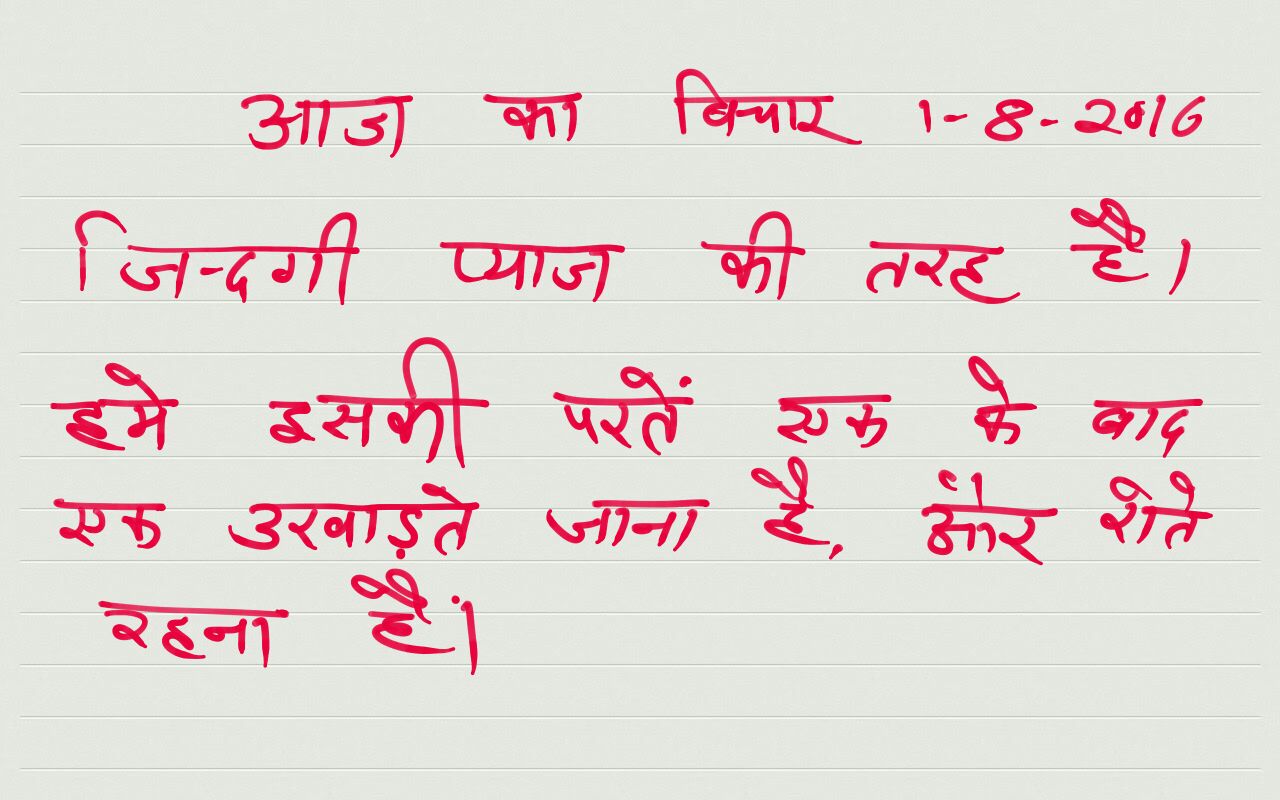 आज का विचार 1-8-2016
जिन्दगी प्याज की तरह है।
हमे इसकी परतें एक के बाद
एक उखाड़ते जाना है, और रोते
रहना हैं।